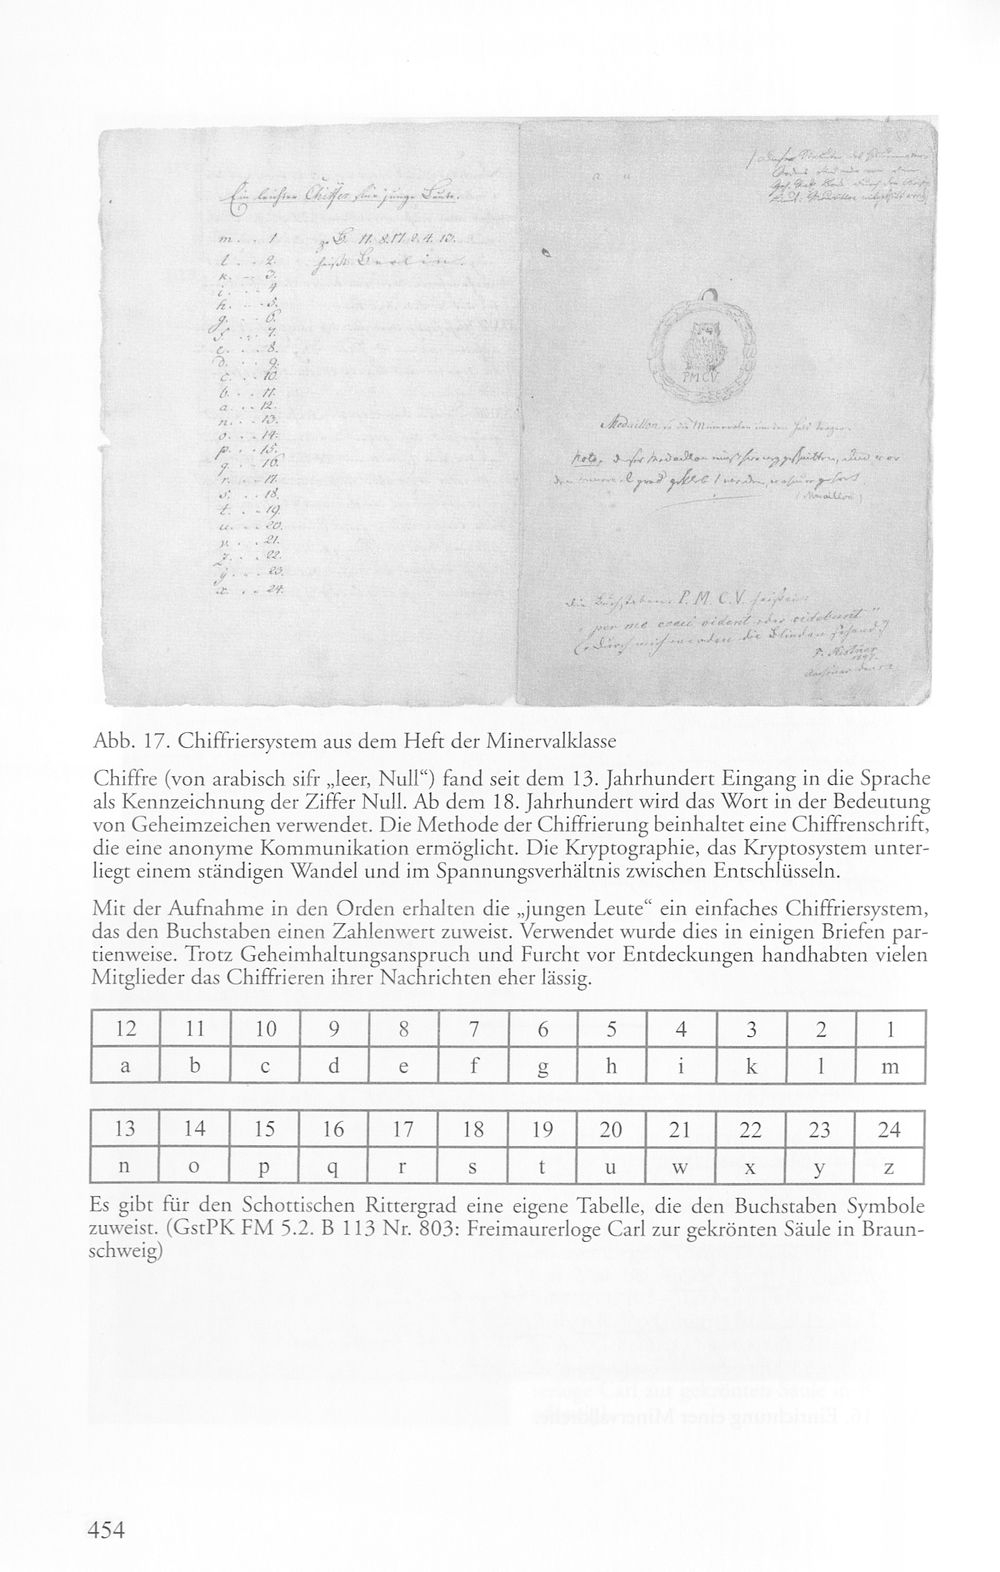 Ein leichter Chiffer für junge Leute.
m . . 1
l . . 2.
k . . 3.
i . . 4
h . . 5.
g . . 6.
f . . 7.
e . . 8.
d . . 9.
c . . 10.
b . . 11.
a . . 12.
n . . 13.
o . . 14.
p . . 15.
q . . 16.
r . . 17.
s . . 18.
t . . 19.
u . . 20.
. . 21.
. . 22.
y . . 23.
. . 24.
z. B. 11. 8. 17. 2. 4. 13.
heißt Berlin.
PMCV
Medaillon
Nota,
(Medaillon)
die Buchstaben. P. M. C. V. heißen:
"per me caeci vident oder videbunt"
(Durch mich werden die Blinden sehend)
Abb. 17. Chiffriersystem aus dem Heft der Minervalklasse
Chiffre (von arabisch sifr „leer, Null“) fand seit dem 13. Jahrhundert Eingang in die Sprache
als Kennzeichnung der Ziffer Null. Ab dem 18. Jahrhundert wird das Wort in der Bedeutung
von Geheimzeichen verwendet. Die Methode der Chiffrierung beinhaltet eine Chiffrenschrift,
die eine anonyme Kommunikation ermöglicht. Die Kryptographie, das Kryptosystem unter-
liegt einem ständigen Wandel und im Spannungsverhältnis zwischen Entschlüsseln.
Mit der Aufnahme in den Orden erhalten die „jungen Leute“ ein einfaches Chiffriersystem,
das den Buchstaben einen Zahlenwert zuweist. Verwendet wurde dies in einigen Briefen par-
tienweise. Trotz Geheimhaltungsanspruch und Furcht vor Entdeckungen handhabten vielen
Mitglieder das Chiffrieren ihrer Nachrichten eher lässig.
12 11 10 9 8 7 6 5 4 3 2 1
a b c d e f g h i k l m
13 14 15 16 17 18 19 20 21 22 23 24
n o p q r s t u w x y z
Es gibt für den Schottischen Rittergrad eine eigene Tabelle, die den Buchstaben Symbole
zuweist. (GstPK FM 5.2. B 113 Nr. 803: Freimaurerloge Carl zur gekrönten Säule in Braun-
schweig)
454